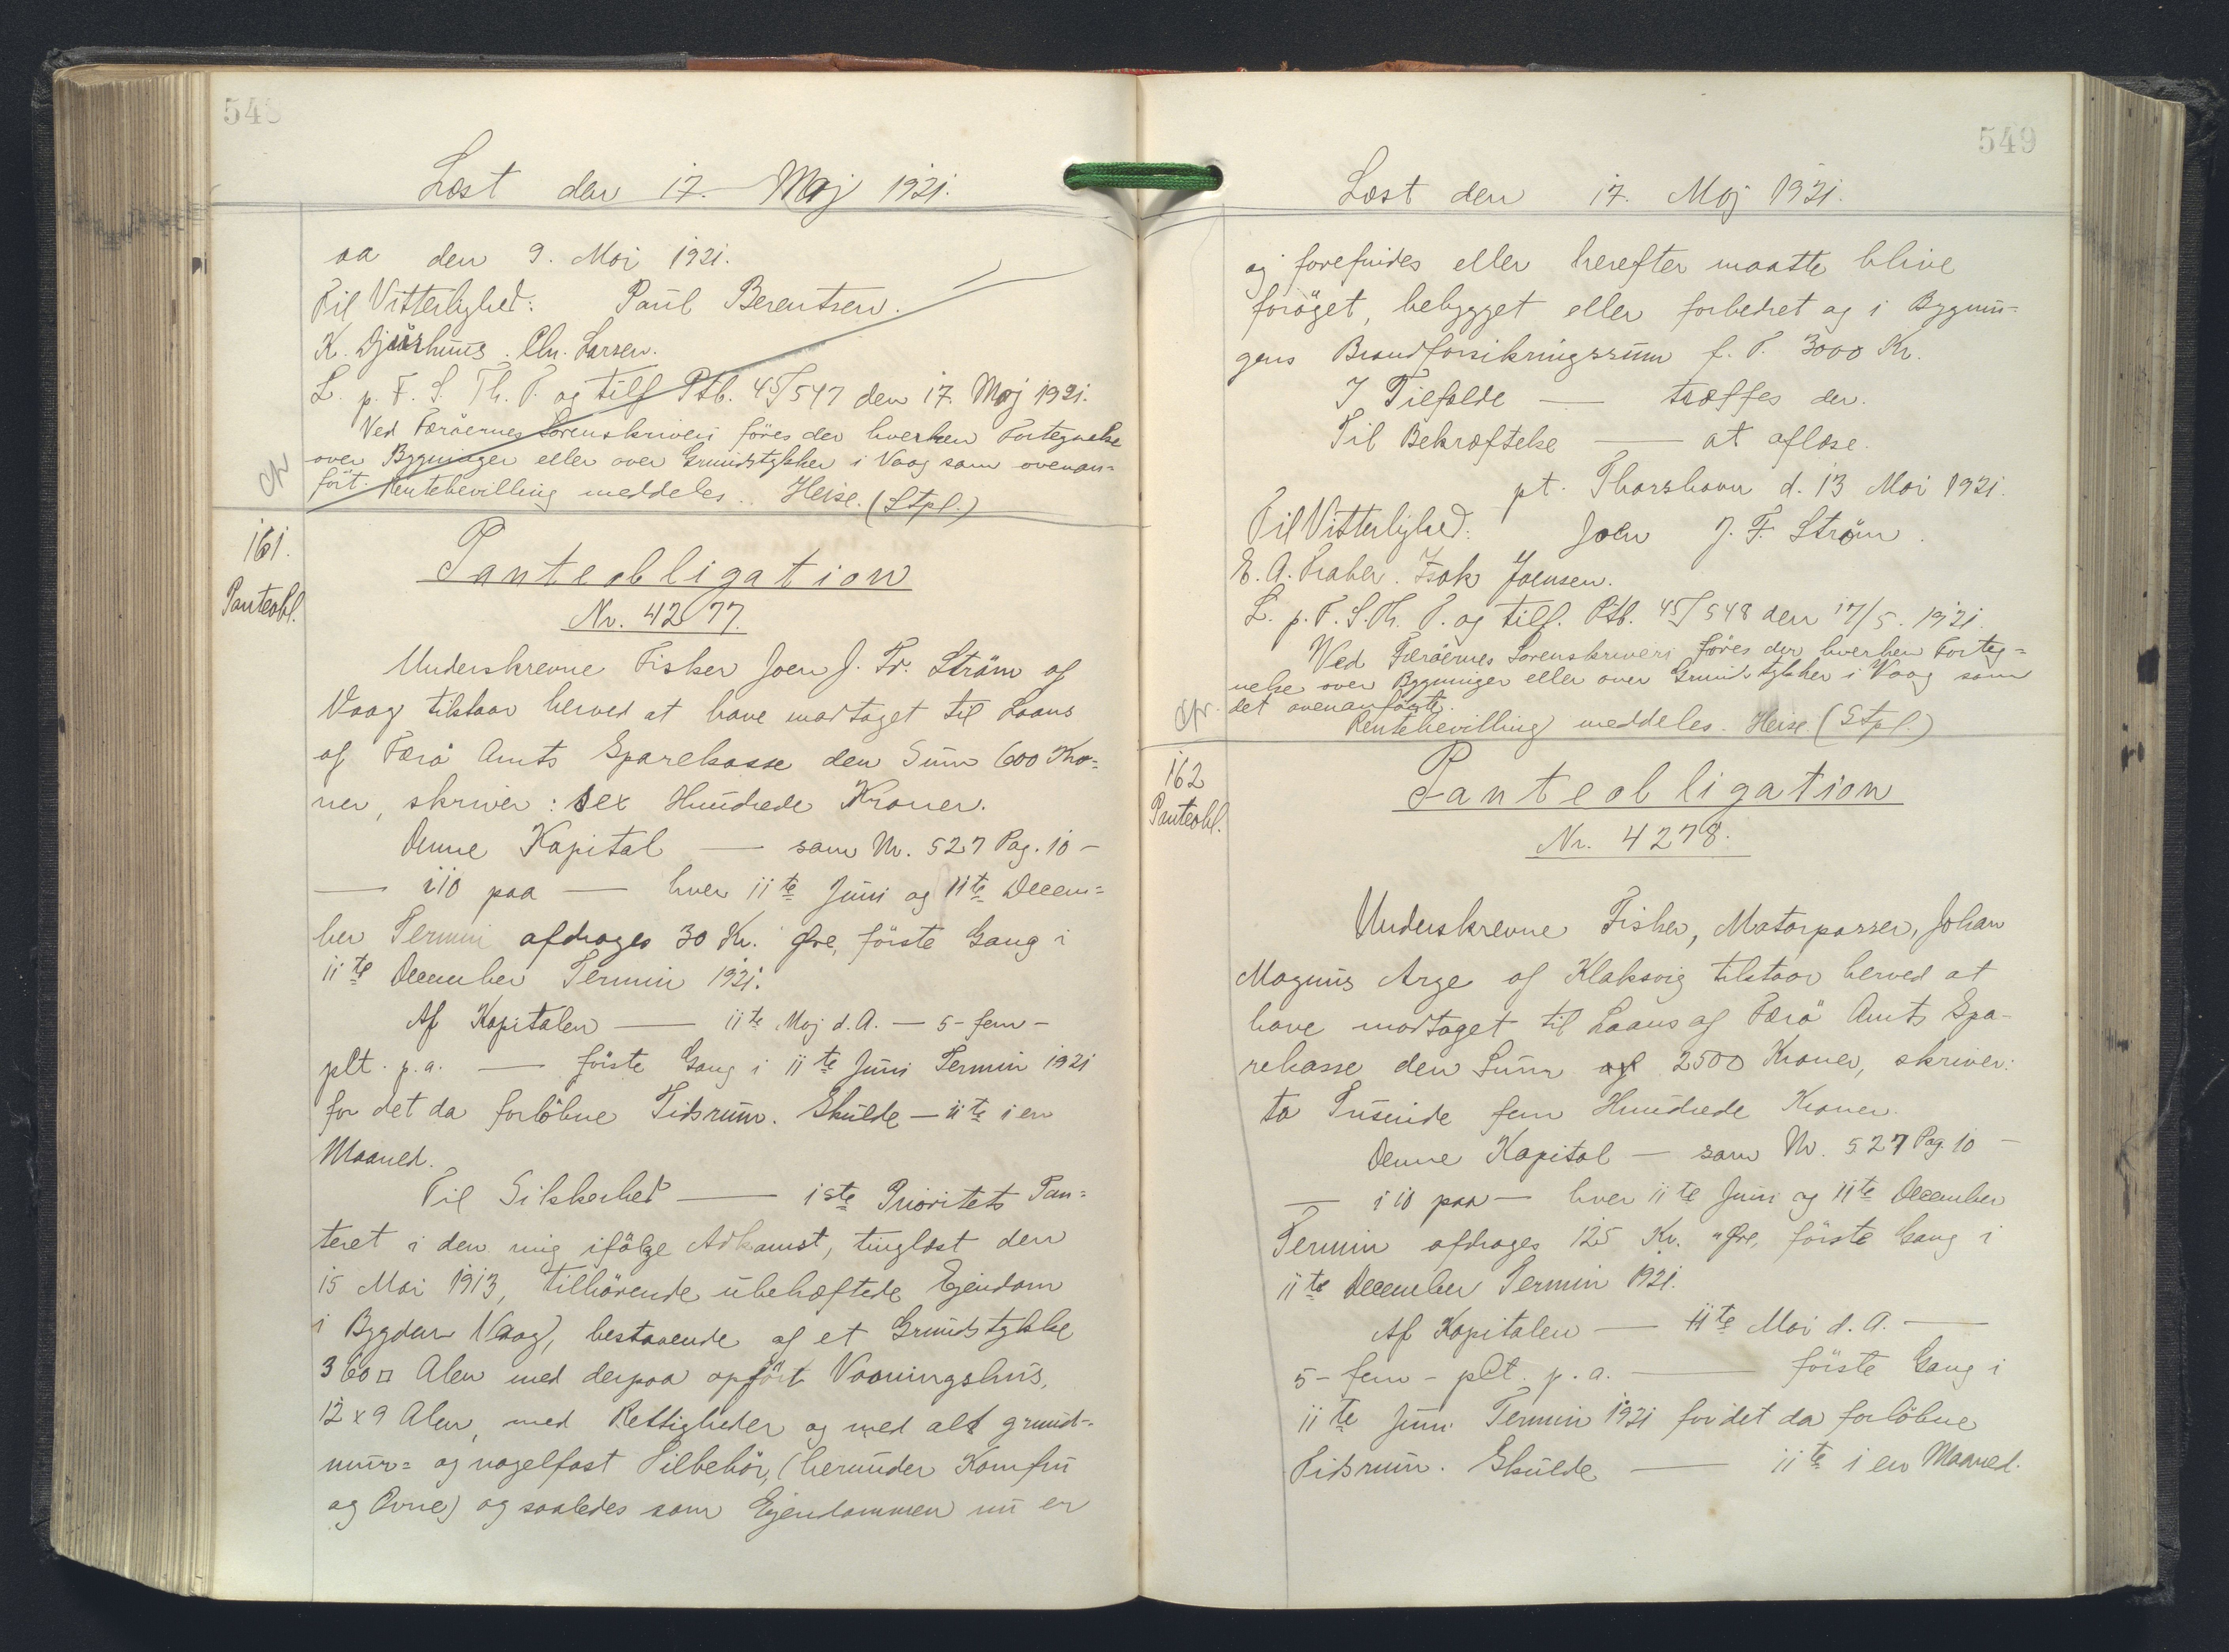 548
Læst den 17. Maj 1921.
aa den 9. Mai 1921.
Til Vitterlighed: Paul Berentsen.
K. Djurhuus. Chr. Larsen.
L. p. F. S. Th. P. og tilf Ptb. 45/547 den 17. Maj 1921.
Ved Færöernes Sorenskriveri föres der hverken Fortegnelse
over Bygninger eller over Grundstykker i Vaag som ovenan-
fört. Rentebevilling meddeles. Heise. (Stpl.)
161.
Panteobl.
Panteobligation
Nr. 4277.
Underskrevne Fisker Joen J. Fr. Ström af
Vaag tilstaar herved at have modtaget til Laans
af Færö Amts Sparekasse den Sum 600 Kro-
ner, skriver: sex Hundrede Kroner.
Denne Kapital — som Nr. 527 Pag. 10 —
— i 10 paa — hver 11te Juni og 11te Decem-
ber Termin afdrages 30 Kr. Øre, förste Gang i
11te December Termin 1921.
Af Kapitalen — 11te Maj d. A. — 5 - fem -
pCt. p. a. — förste Gang i 11te Juni Termin 1921
for det da forlöbne Tidsrum. Skulde — 11te i en
Maaned.
Til Sikkerhed — 1ste Prioritets Pan-
teret i den mig ifölge Adkomst, tinglæst den
15 Mai 1913, tilhörende ubehæftede Ejendom
i Bygden Vaag, bestaaende af et Grundstykke
360 □ Alen med derpaa opfört Vaaningshus,
12 x 9 Alen, med Rettigheder og med alt grund-
mur- og nagelfast Tilbehör, (herunder Komfur
og Ovne) og saaledes som Ejendommen nu er
549
Læst den 17. Maj 1921.
og forefindes eller herefter maatte blive
foröget, bebygget eller forbedret og i Bygnin-
gens Brandforsikringssum f. T. 3000 Kr.
I Tilfælde — træffes der.
Til Bekræftelse — at aflæse.
pt. Thorshavn d. 13 Mai 1921.
Til Vitterlighed: Joen J. F. Ström.
Isak Joensen.
L. p. F. S. Th. P. og tilf. Ptb. 45/548 den 17/5. 1921.
Ved Færöernes Sorenskriveri föres der hverken Forteg-
nelse over Bygninger eller over Grundstykker i Vaag som
det ovenanförte.
Rentebevilling meddeles. Heise. (Stpl.)
162
Panteobl.
Panteobligation
Nr. 4278.
Underskrevne Fisker, Motorpasser, Johan
Magnus Arge af Klaksvig tilstaar herved at
have modtaget til Laans af Færö Amts Spa-
rekasse den Sum 2500 Kroner, skriver:
to Tusinde fem Hundrede Kroner.
Denne Kapital — som Nr. 527 Pag. 10 —
— i 10 paa — hver 11te Juni og 11te December
Termin afdrages 125 Kr. " Øre, förste Gang i
11te December Termin 1921.
Af Kapitalen — 11te Mai d. A. —
5 - fem - pCt. p. a. — förste Gang i
11te Juni Termin 1921 for det da forlöbne
Tidsrum. Skulde — 11te i en Maaned.